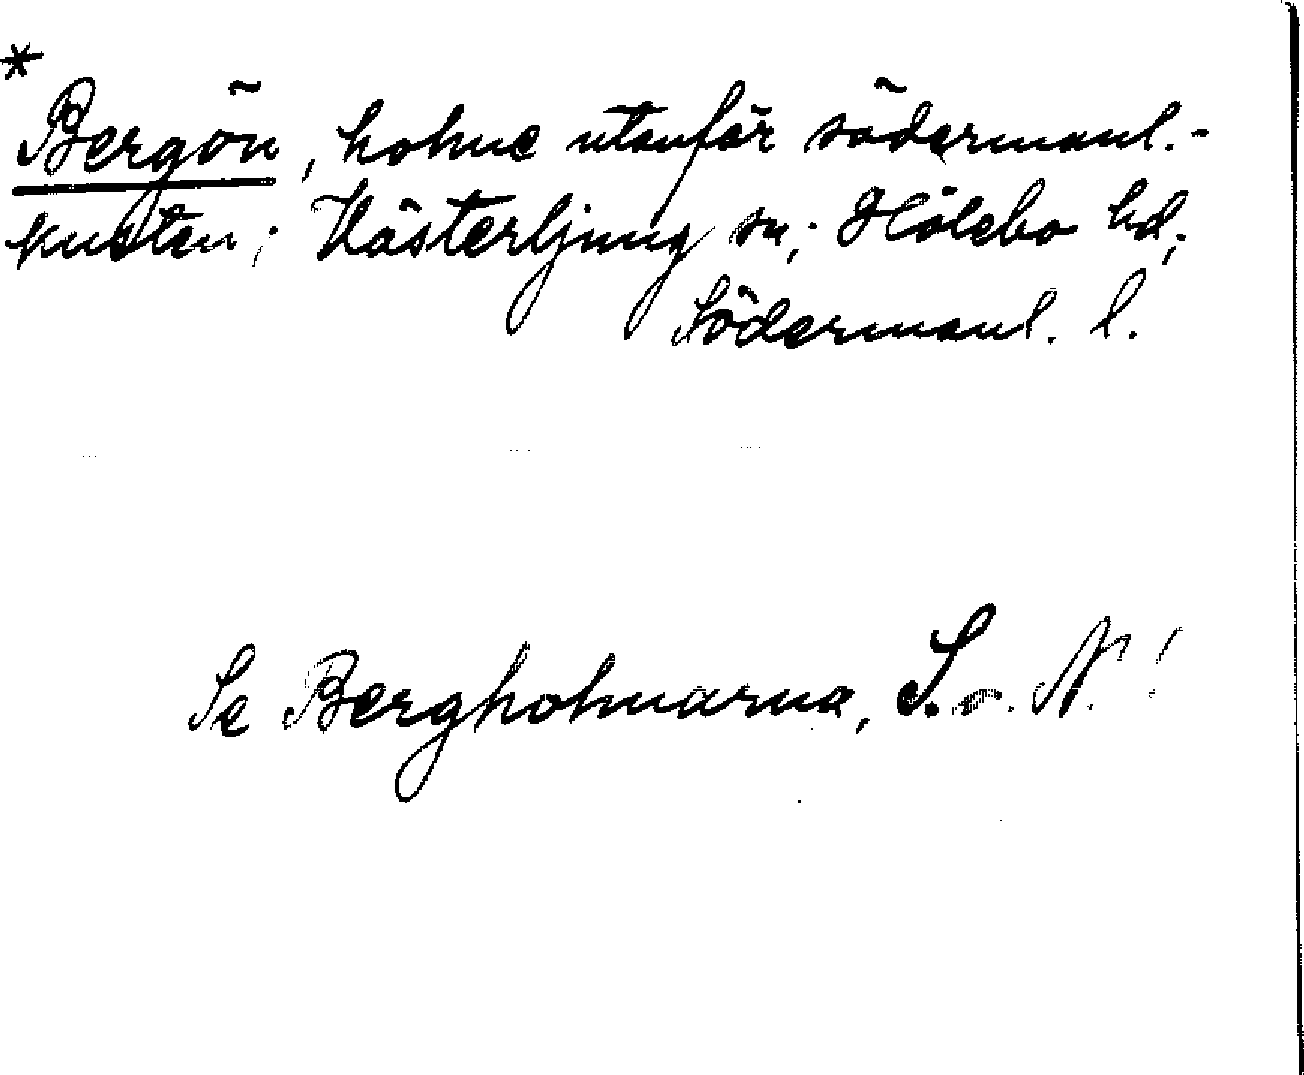 *
Bergön, holme utanför södermanl.-
kusten; Västerljung sn; Hölebo hd;
Södermanl. l.
Se Bergholmarna, S. o. N!